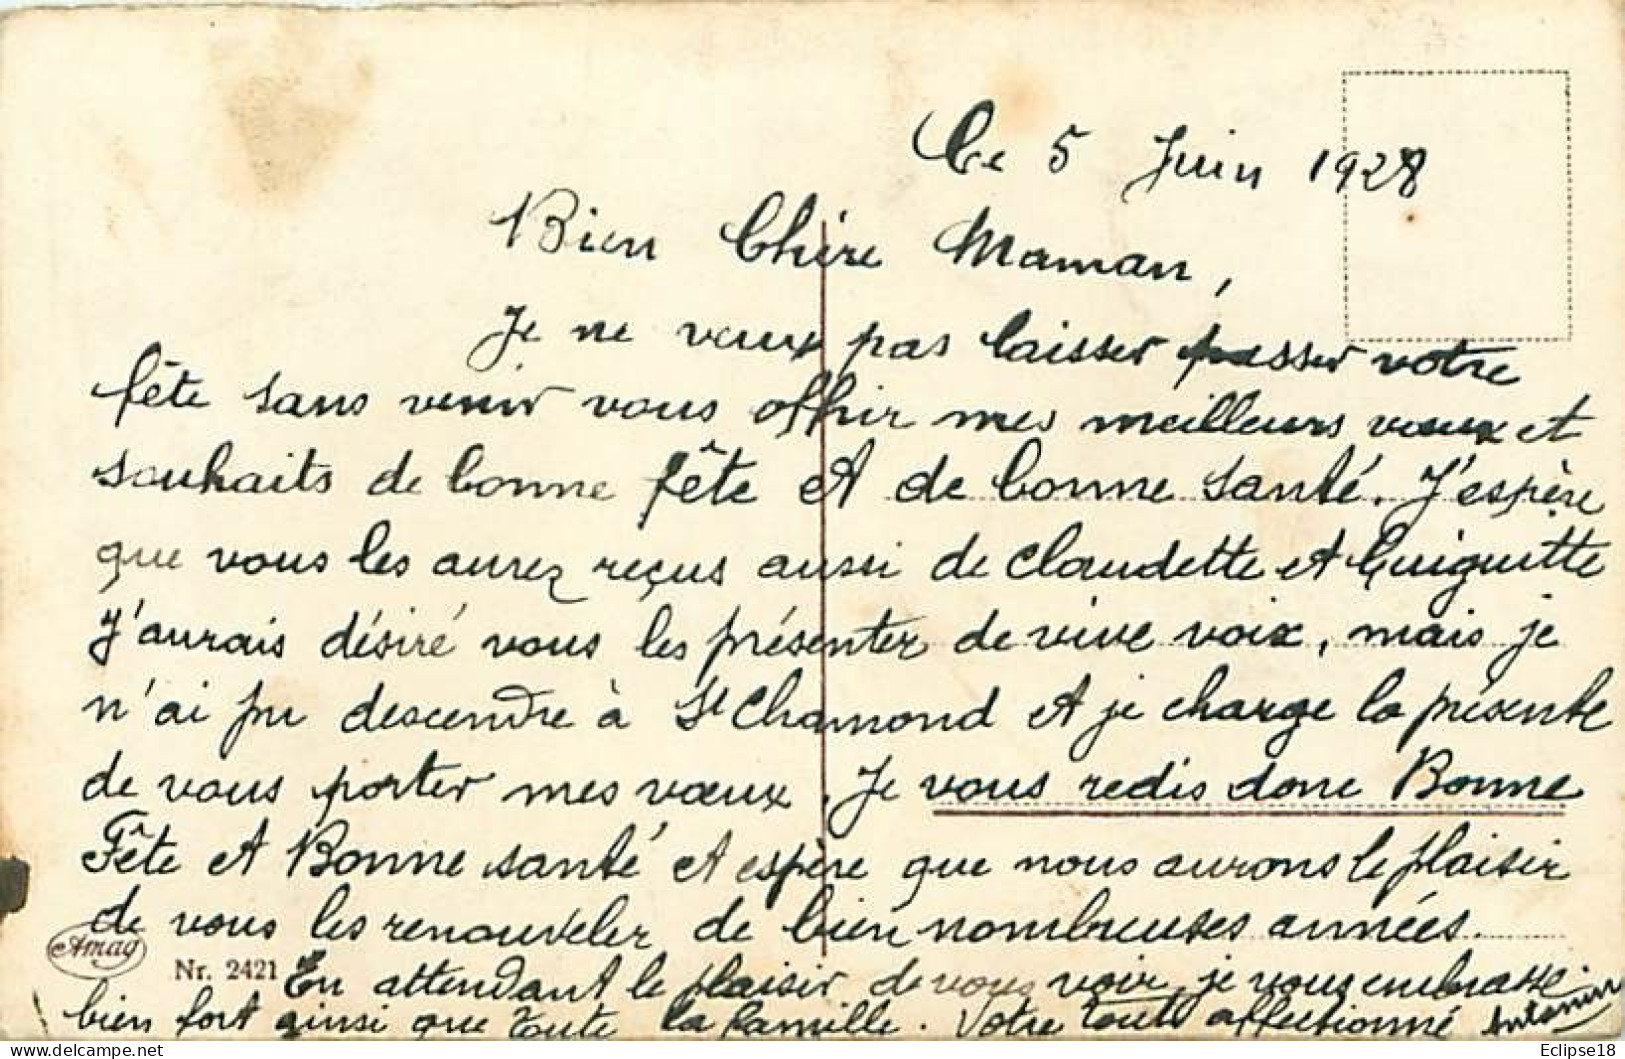 Le 5 Juin 1928
Bien Chère Maman,
Je ne veux pas laisser passer votre
fête sans venir vous offrir mes meilleurs vœux et
souhaits de bonne fête et de bonne santé. J'espère
que vous les aurez reçus aussi de Claudette et Guiguitte
J'aurais désiré vous les présenter de vive voix, mais je
n'ai pu descendre à St Chamond et je charge la présente
de vous porter mes vœux. Je vous redis donc Bonne
Fête et Bonne santé et espère que nous aurons le plaisir
de vous les renouveler de bien nombreuses années.
Amag
Nr. 2421
En attendant le plaisir de vous voir, je vous embrasse
bien fort ainsi que toute la famille. Votre tout affectionné Antonin
Delcampe.net
Eclipse18